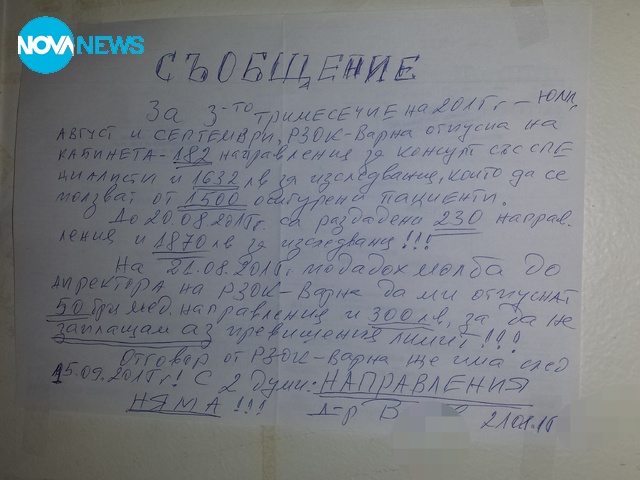 NOVANEWS
СЪОБЩЕНИЕ
За 3-то тримесечие на 2015г – юли,
август и септември, РЗОК-Варна отпусна на
кабинета – 182 направления за консулт със спе
циалисти и 1632 лв за изследвания, които да се
ползват от 1500 осигурени пациенти.
До 20.08.2015г. са раздадени 230 направ-
ления и 1870 лв за изследван !!!
На 21.08.2015г подадох молба до
директора на РЗОК-Варна да ми отпуснат
50 бри мед. направления и 300 лв, за да не
заплащам аз превишения лимит !!!
Отговор от РЗОК-Варна ще има след
15.09.2015г! С 2 думи: НАПРАВЛЕНИЯ
НЯМА !!! Д-р В 21.08.15